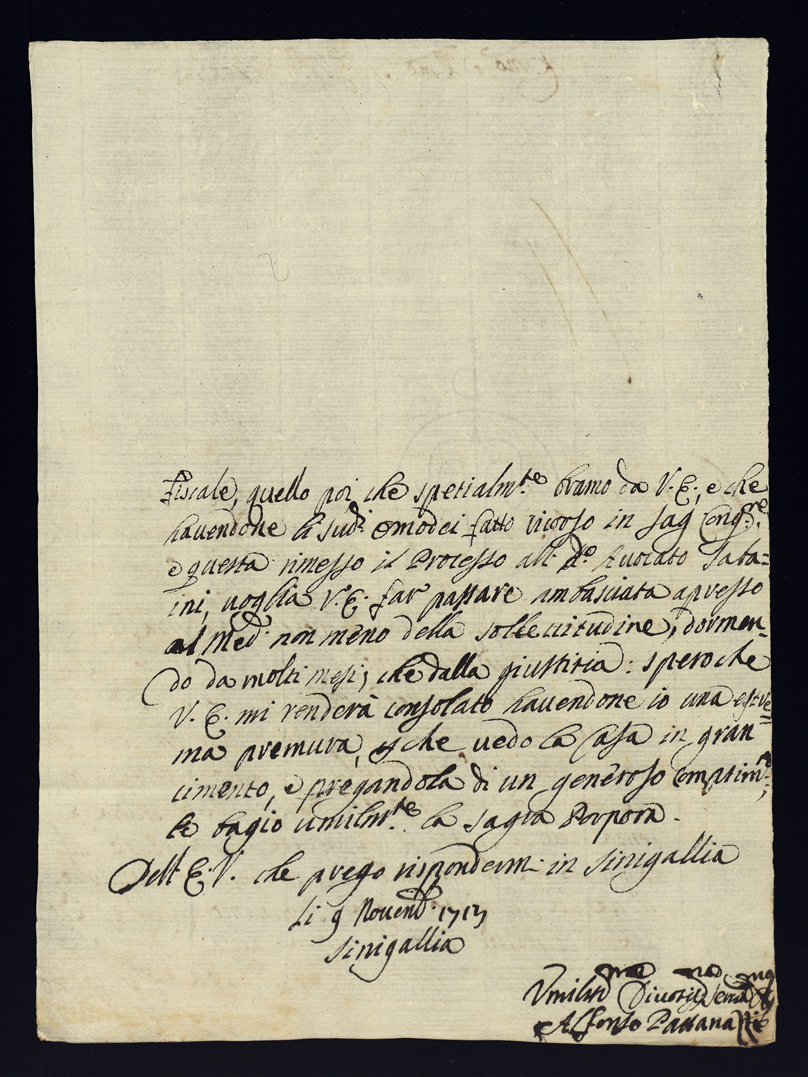 Fiscale, quello poi che spetialm.te bramo da V. E., e che
havendone li sud.i Omodei fatto ricorso in sag. Cong.ne,
e questa rimesso il Processo all. d.o Avocato Saba=
ini, voglia V. E. far passare ambasciata apresso
al Med. non meno della sollecitudine, dormen-
do da molti mesi, che dalla giustitia: spero che
V. E. mi renderà consolato havendone io una estre=
ma premura, che vedo la Casa in gran
cimento, e pregandola di un generoso
le bagio umilm.te la sagra Porpora.
Dell E. V. che prego rispondermi in Sinigallia
Li 9 Novemb. 1713
Sinigallia
Umiliss.mo Divotiss.mo
Alfonso